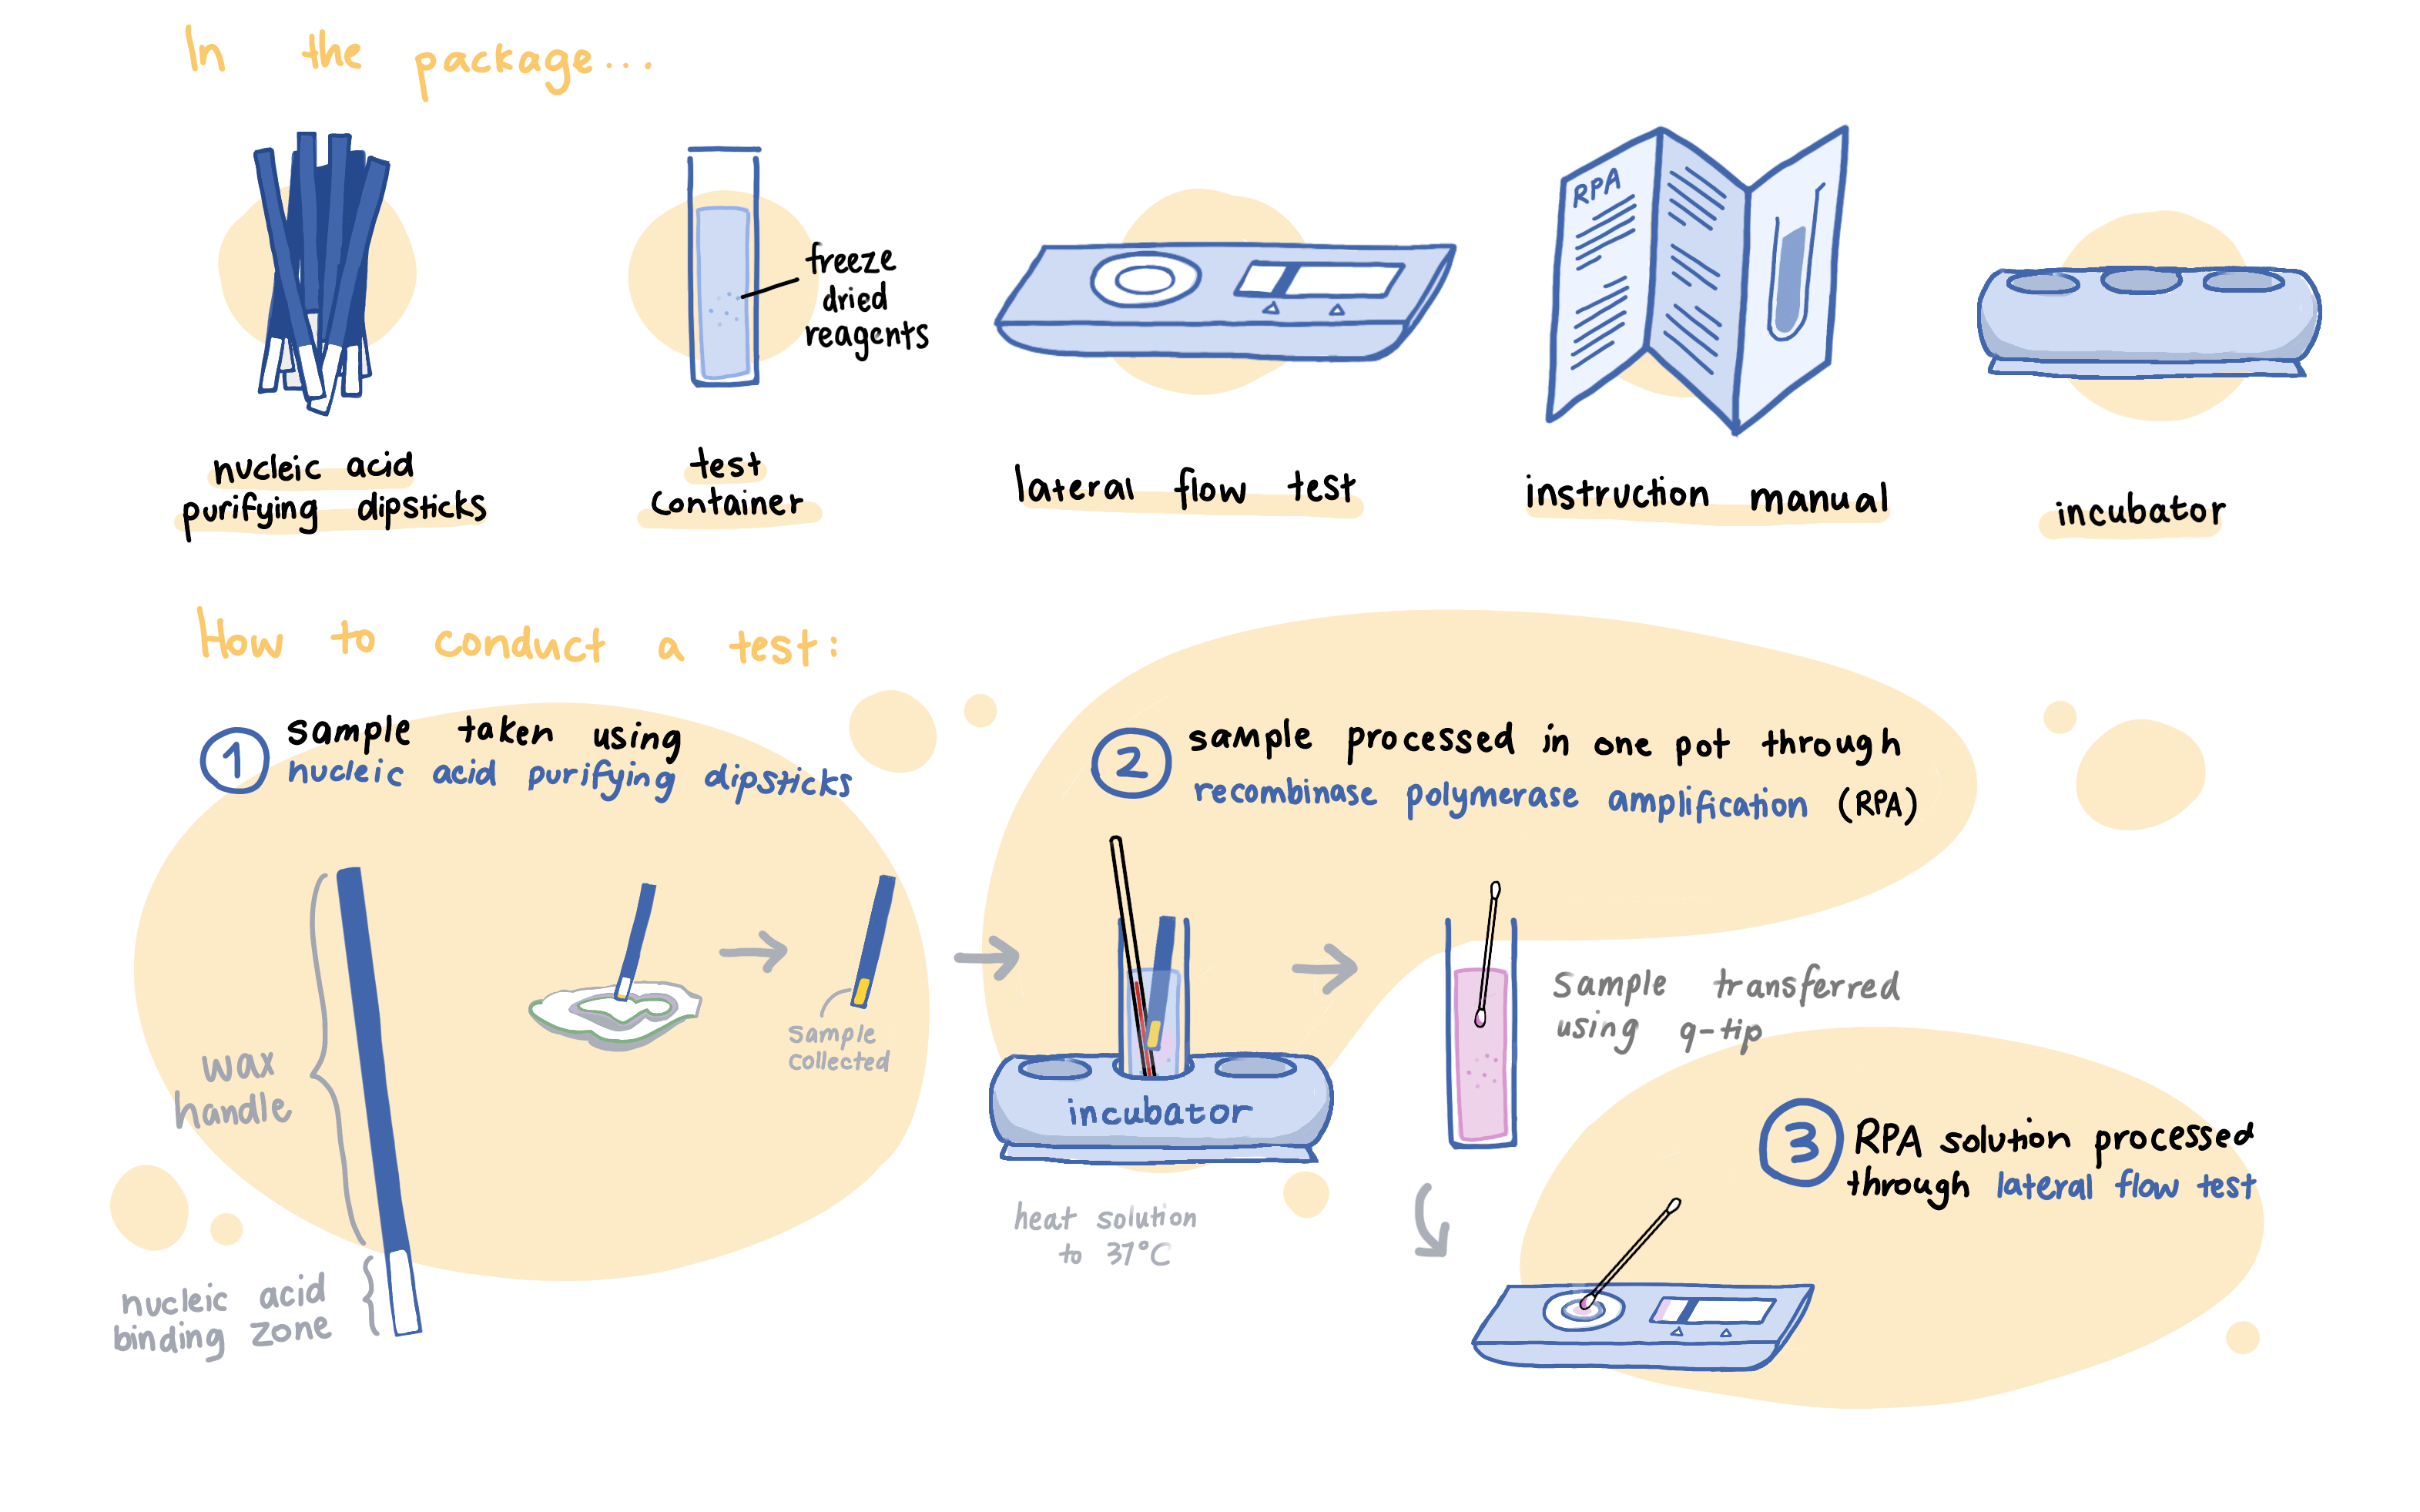 In the package...
freeze
dried
reagents
nucleic acid
purifying dipsticks
test
container
lateral flow test
RPA
instruction manual
incubator
How to conduct a test:
1
sample taken using
nucleic acid purifying dipsticks
wax
handle
nucleic acid
binding zone
sample
collected
2
sample processed in one pot through
recombinase polymerase amplification (RPA)
incubator
heat solution
to 37°C
sample transferred
using q-tip
3
RPA solution processed
through lateral flow test